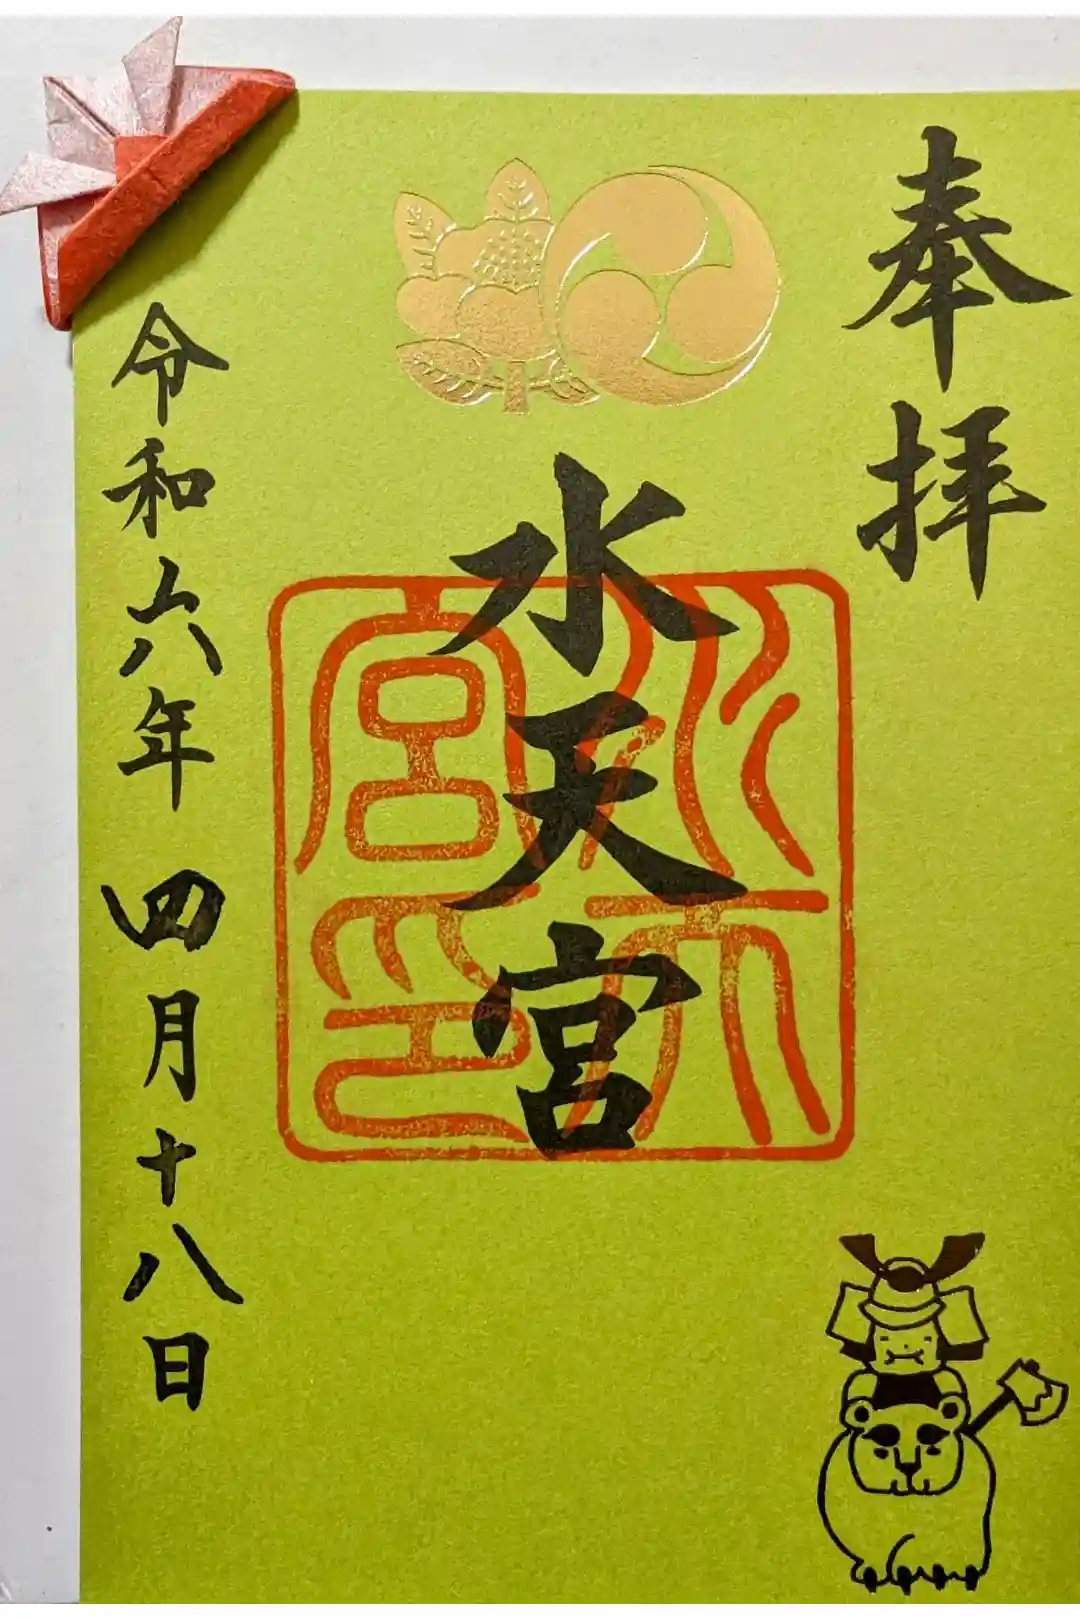 奉拝
水天宮
水天宮印
令和六年四月十八日